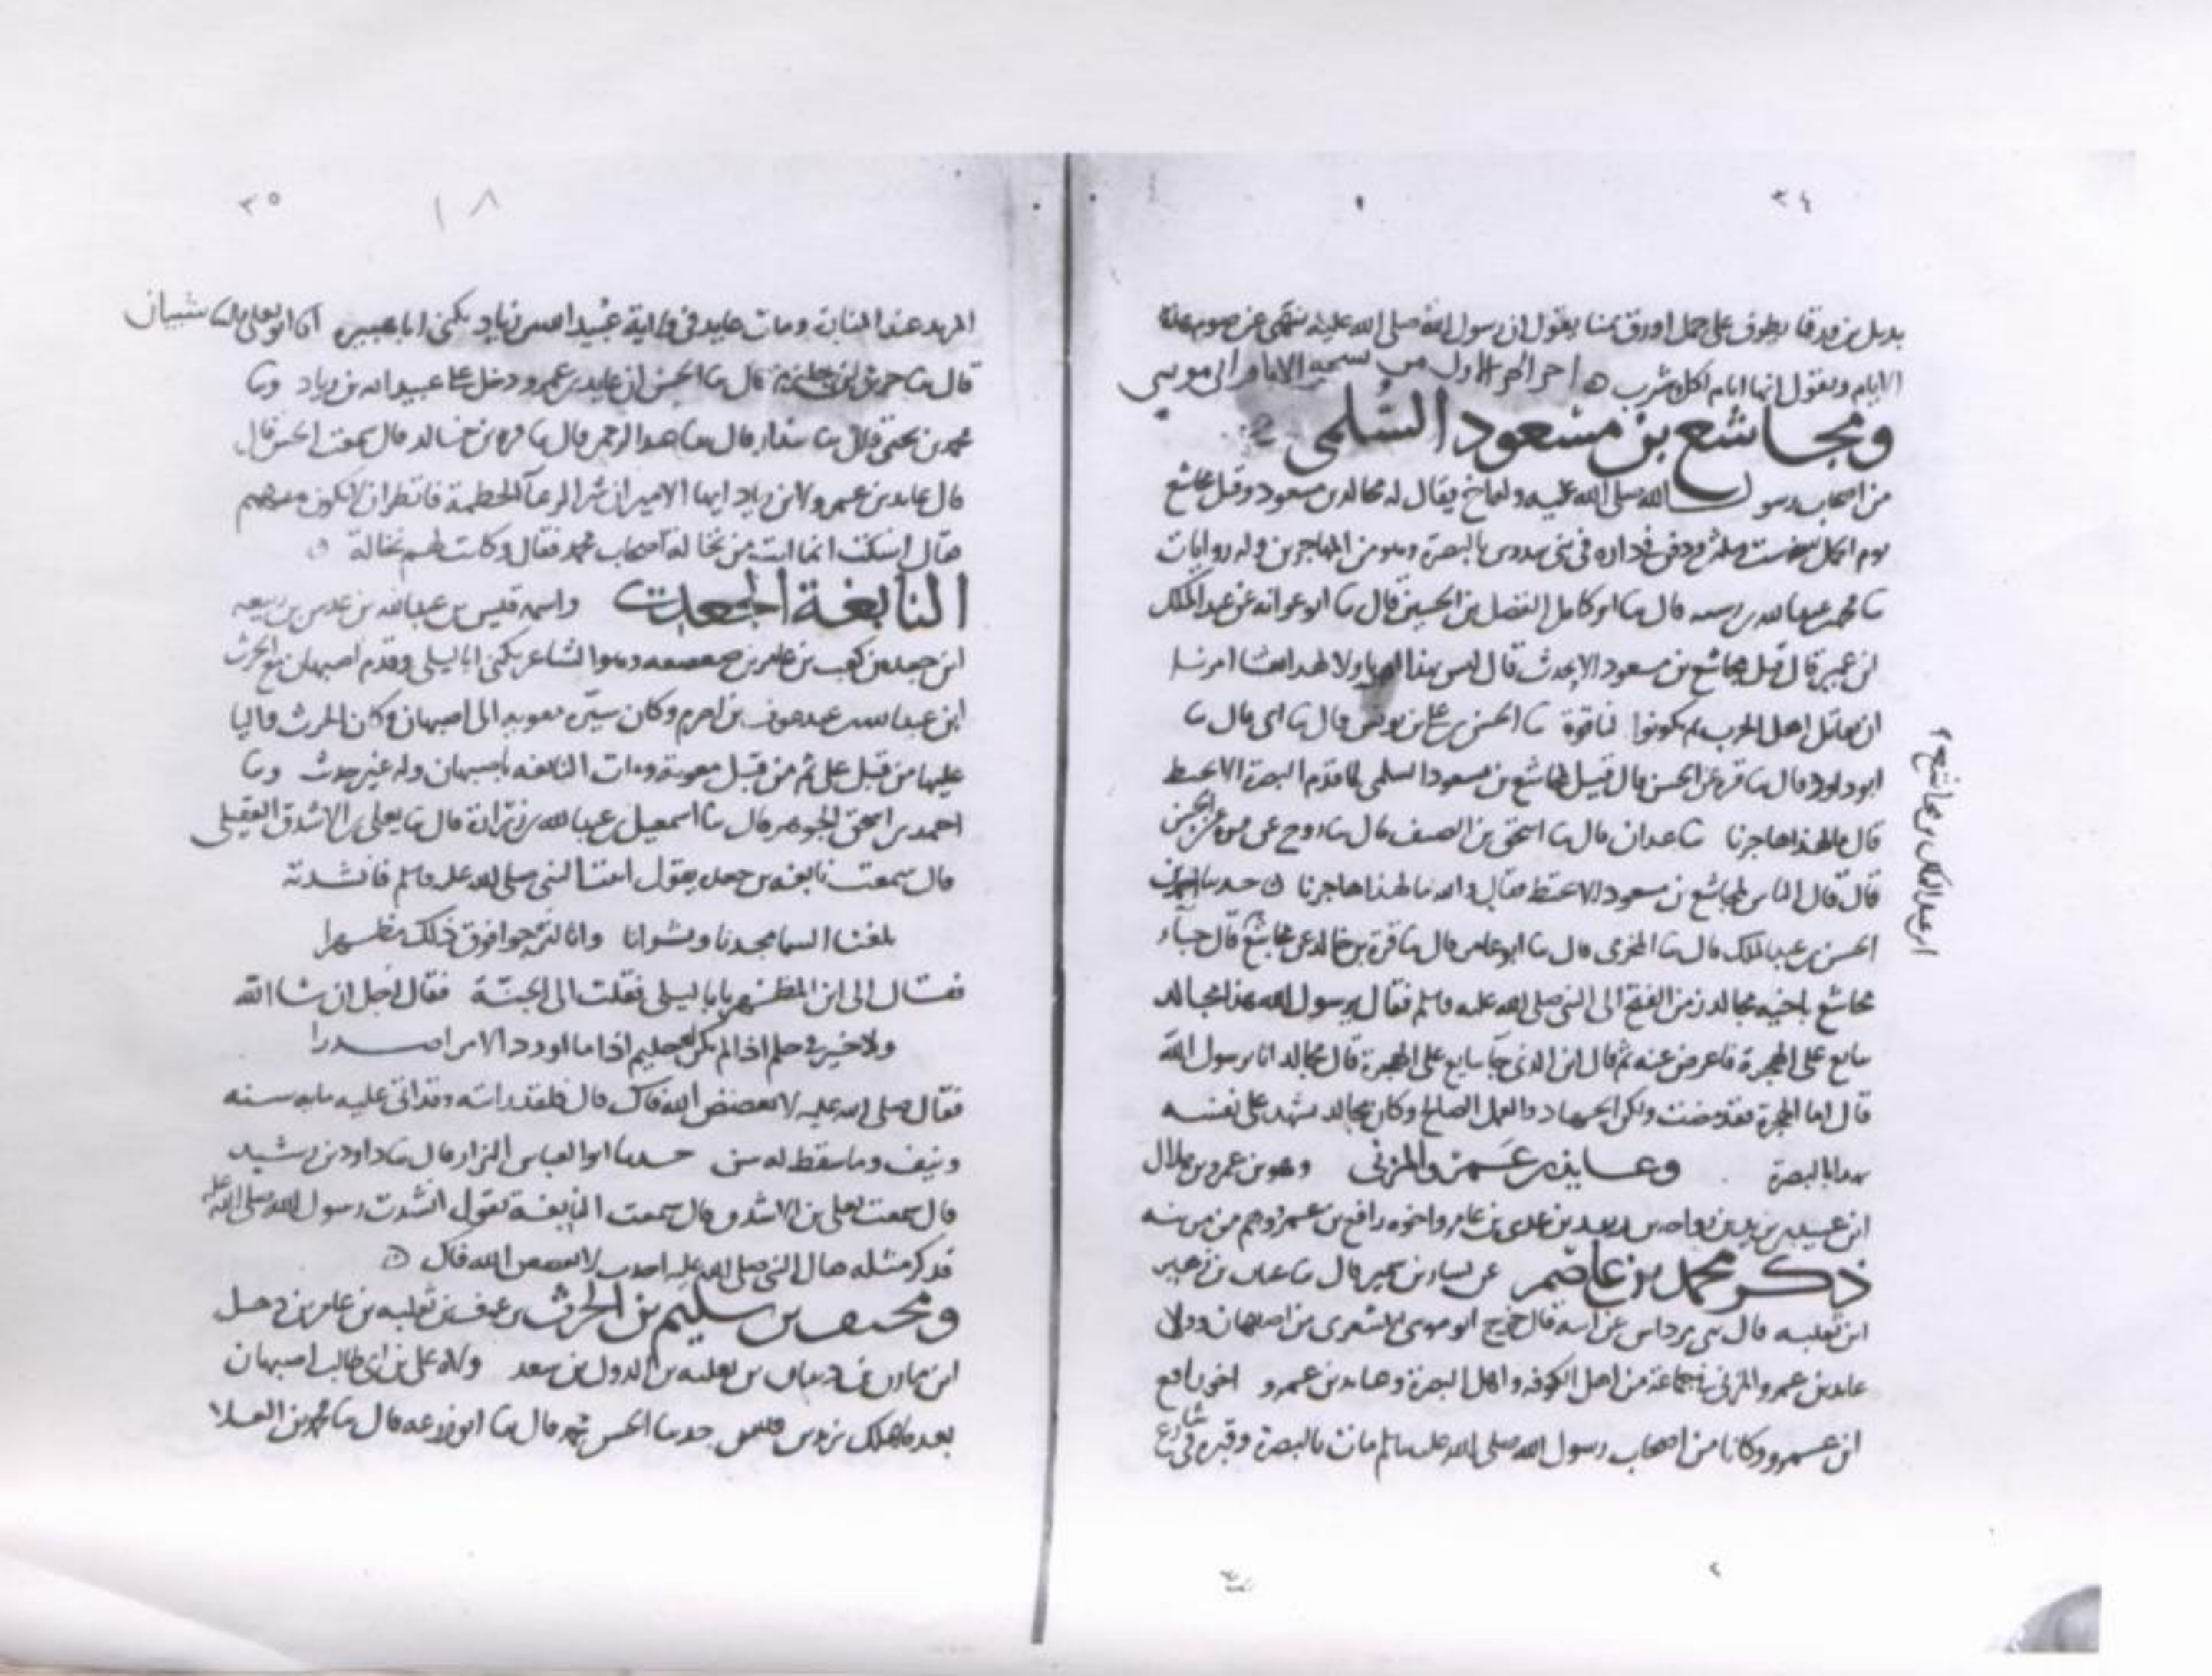 ٣٤
بديل بن ورقا يطوف على جمل اورق بمنا يقول ان رسول الله صلى الله عليه ينهى عن صوم هذه
الايام ويقول انها ايام اكل وشرب اخر الجز الاول من
ومجاشع بن مسعود السلمى
من اصحاب رسول الله صلى الله عليه وله اخ يقال له مجالد بن مسعود وقتل مجاشع
يوم الجمل سنة ست وثلثين ودفن في داره في بني سدوس بالبصرة وهو من المهاجرين وله روايات
ثنا محمد بن عبدالله بن رسته قال ثنا ابو كامل الفضل بن الحسين قال ثنا ابو عوانه عن عبد الملك
ابن عمير قال قيل لمجاشع بن مسعود الا تحدث قال ليس لهذا ولا لهذا امرنا
ان نقاتل اهل الحرب ثنا الحسن بن علي بن يونس قال ثنا ابي قال ثنا
ابو داود قال ثنا قره عن الحسن قال قيل لمجاشع بن مسعود السلمي لما قدم البصرة الا تختط
قال ما لهذا هاجرنا ثنا عبدان قال ثنا اسحق بن الضيف قال ثنا روح عن عن الحسن
قال قال الناس لمجاشع بن مسعود الا تختط فقال والله ما لهذا هاجرنا حدثنا
الحسن بن عبد الملك قال ثنا المخرمي قال ثنا ابو عامر قال ثنا قرة بن خالد عن مجاشع قال جاء
مجاشع باخيه مجالد زمن الفتح الى النبي صلى الله عليه وسلم فقال يرسول الله هذا مجالد
يبايع على الهجرة فاعرض عنه ثم قال اين الذي جا يبايع على الهجرة قال مجالد انا يرسول الله
قال اما الهجرة فقد مضت ولكن الجهاد والعمل الصالح وكان مجالد يشهد على نفسه
بهذا بالبصرة وعايذ بن عمرو المزنى وهو بن عمرو بن هلال
ابن عبيد بن يزيد بن رواحه بن ربيعه بن عدي بن عامر واخوه رافع بن عمرو وهم من مزينه
ذكر محمد بن عاصم عن قال ثنا
ابن ثعلبه قال عن ابيه قال خرج ابو موسى الاشعري من اصبهان وولا
عايذ بن عمرو المزني في جماعة من اهل الكوفه واهل البصرة وعايذ بن عمرو اخو رافع
ابن عمرو وكانا من اصحاب رسول الله صلى الله عليه وسلم مات بالبصرة وقبره في شارع
ابن عبد الملك بن مجاشع
٣٥
١٨
المربد عند المنابة ومات عايذ في ولاية عبيد الله بن زياد يكنى ابا هبيره انا ابو يعلى ثنا شيبان
قال ثنا جرير بن حازم قال ثنا الحسن ان عايذ بن عمرو دخل على عبيدالله بن زياد وثنا
محمد بن يحيى قال ثنا بندار قال ثنا عبد الرحمن قال ثنا قره بن خالد قال سمعت الحسن قال
قال عايذ بن عمرو لابن زياد ايها الامير ان شر الرعآ الحطمة فانظر ان لا تكون منهم
فقال اسكت انما انت من نخالة اصحاب محمد فقال وكانت لهم نخالة
النابغة الجعدى واسمه قيس بن عبدالله بن عدس بن ربيعه
ابن جعده بن كعب بن عامر بن صعصعه وهو الشاعر يكنى ابا ليلى وقدم اصبهان مع الحرث
ابن عبدالله بن عبد عوف بن اصرم وكان سيره معويه الى اصبهان وكان الحرث واليا
عليها من قبل علي ثم من قبل معوية ومات النابغه باصبهان وله غير حديث وثنا
احمد بن اسحق الجوهري قال ثنا اسمعيل بن عبدالله بن زرارة قال ثنا يعلى بن الاشدق العقيلي
قال سمعت نابغه بن جعده يقول اتيت النبي صلى الله عليه وسلم فانشدته
بلغنا السما مجدنا وسنانا وانا لنرجوا فوق ذلك مظهرا
فقال الى اين المظهر يابا ليلى فقلت الى الجنة فقال اجل ان شا الله
ولا خير في حلم اذا لم يكن حليم اذا ما اورد الامر اصدرا
فقال صلى الله عليه لا يفضض الله فاك قال فلقد رايته وقد اتى عليه مايه سنه
ونيف وما سقط له سن حدثنا ابو العباس البزار قال ثنا داود بن رشيد
قال سمعت يعلى بن الاشدق قال سمعت النابغة يقول انشدت رسول الله صلى الله عليه
فذكر مثله فقال النبي صلى الله عليه اجدت لا يفضض الله فاك
ومخنف بن سليم بن الحرث بن عوف بن ثعلبه بن عامر بن ذهل
ابن مازن بن ذبيان بن ثعلبه بن الدول بن سعد ولاه علي بن ابي طالب اصبهان
بعد ما هلك يزيد بن قيس حدثنا الحسن بن محمد قال ثنا ابو زرعه قال ثنا محمد بن العلا